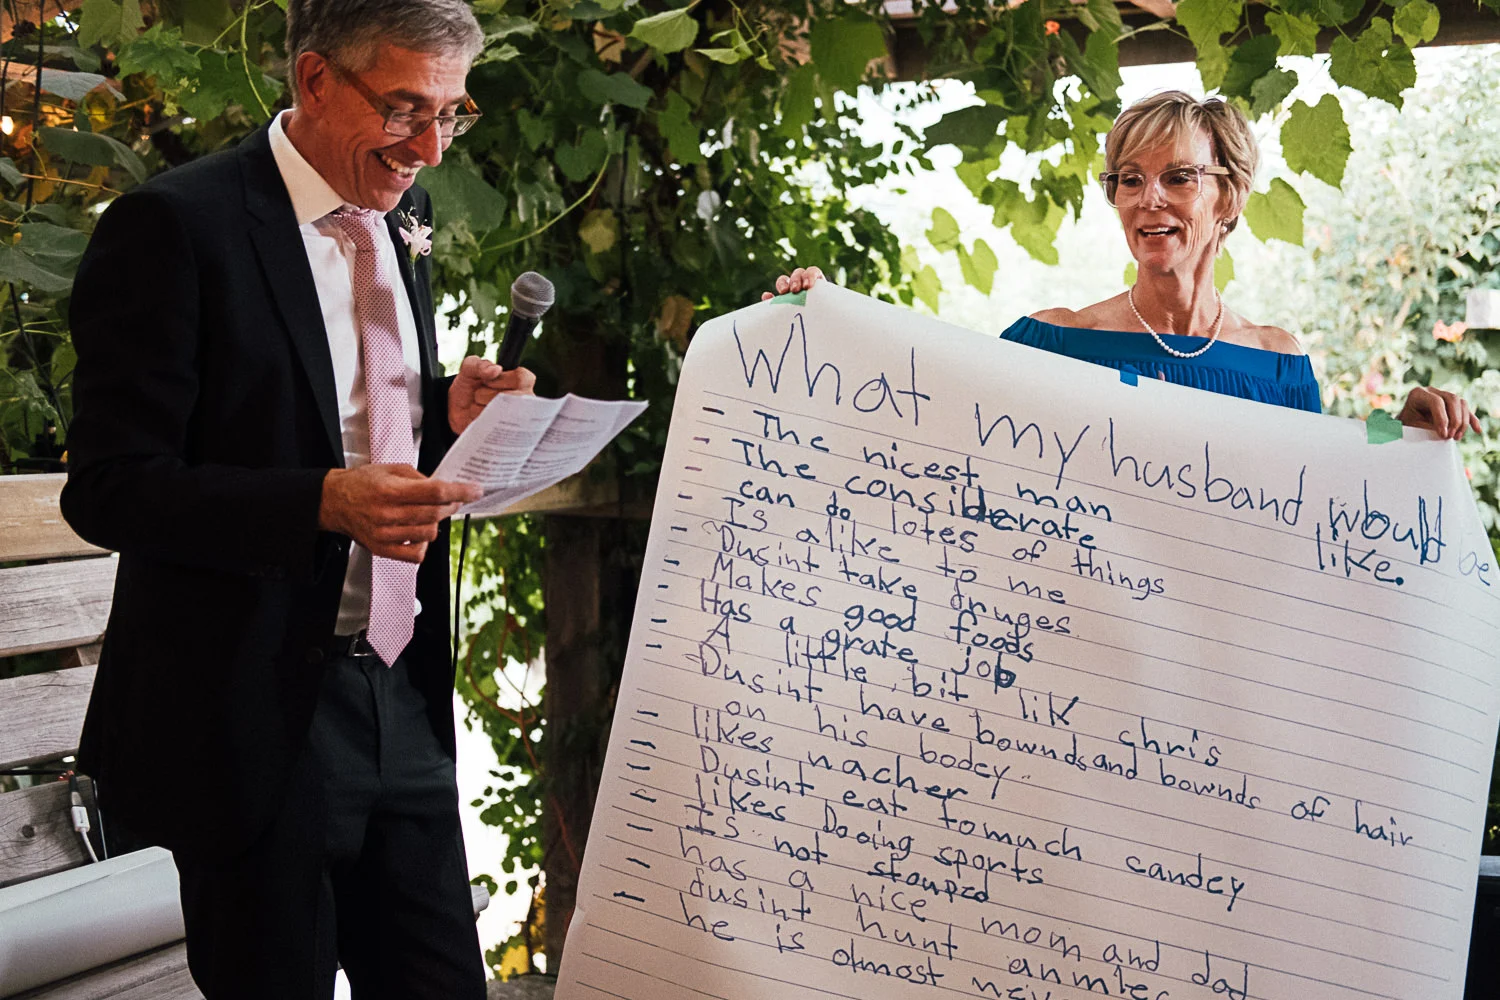 What my husband would be
like.
- The nicest man
- The considerate
- can do lotes of things
- Is alike to me
- Dusint take druges.
- Makes good foods
- Has a grate job
- A little bit lik chris
- Dusint have bownds and bownds of hair
on his bodey.
- likes nacher
- Dusint eat tomuch candey
- likes Dooing sports
- Is not stoupid
- has a nice mom and dad
- dusint hunt anmles
- he is olmost